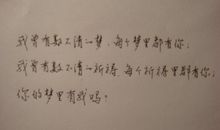 我曾有数不清的梦，每个梦里都有你；
我曾有数不清的祈祷，每个祈祷里都有你；
你的梦里有我吗？